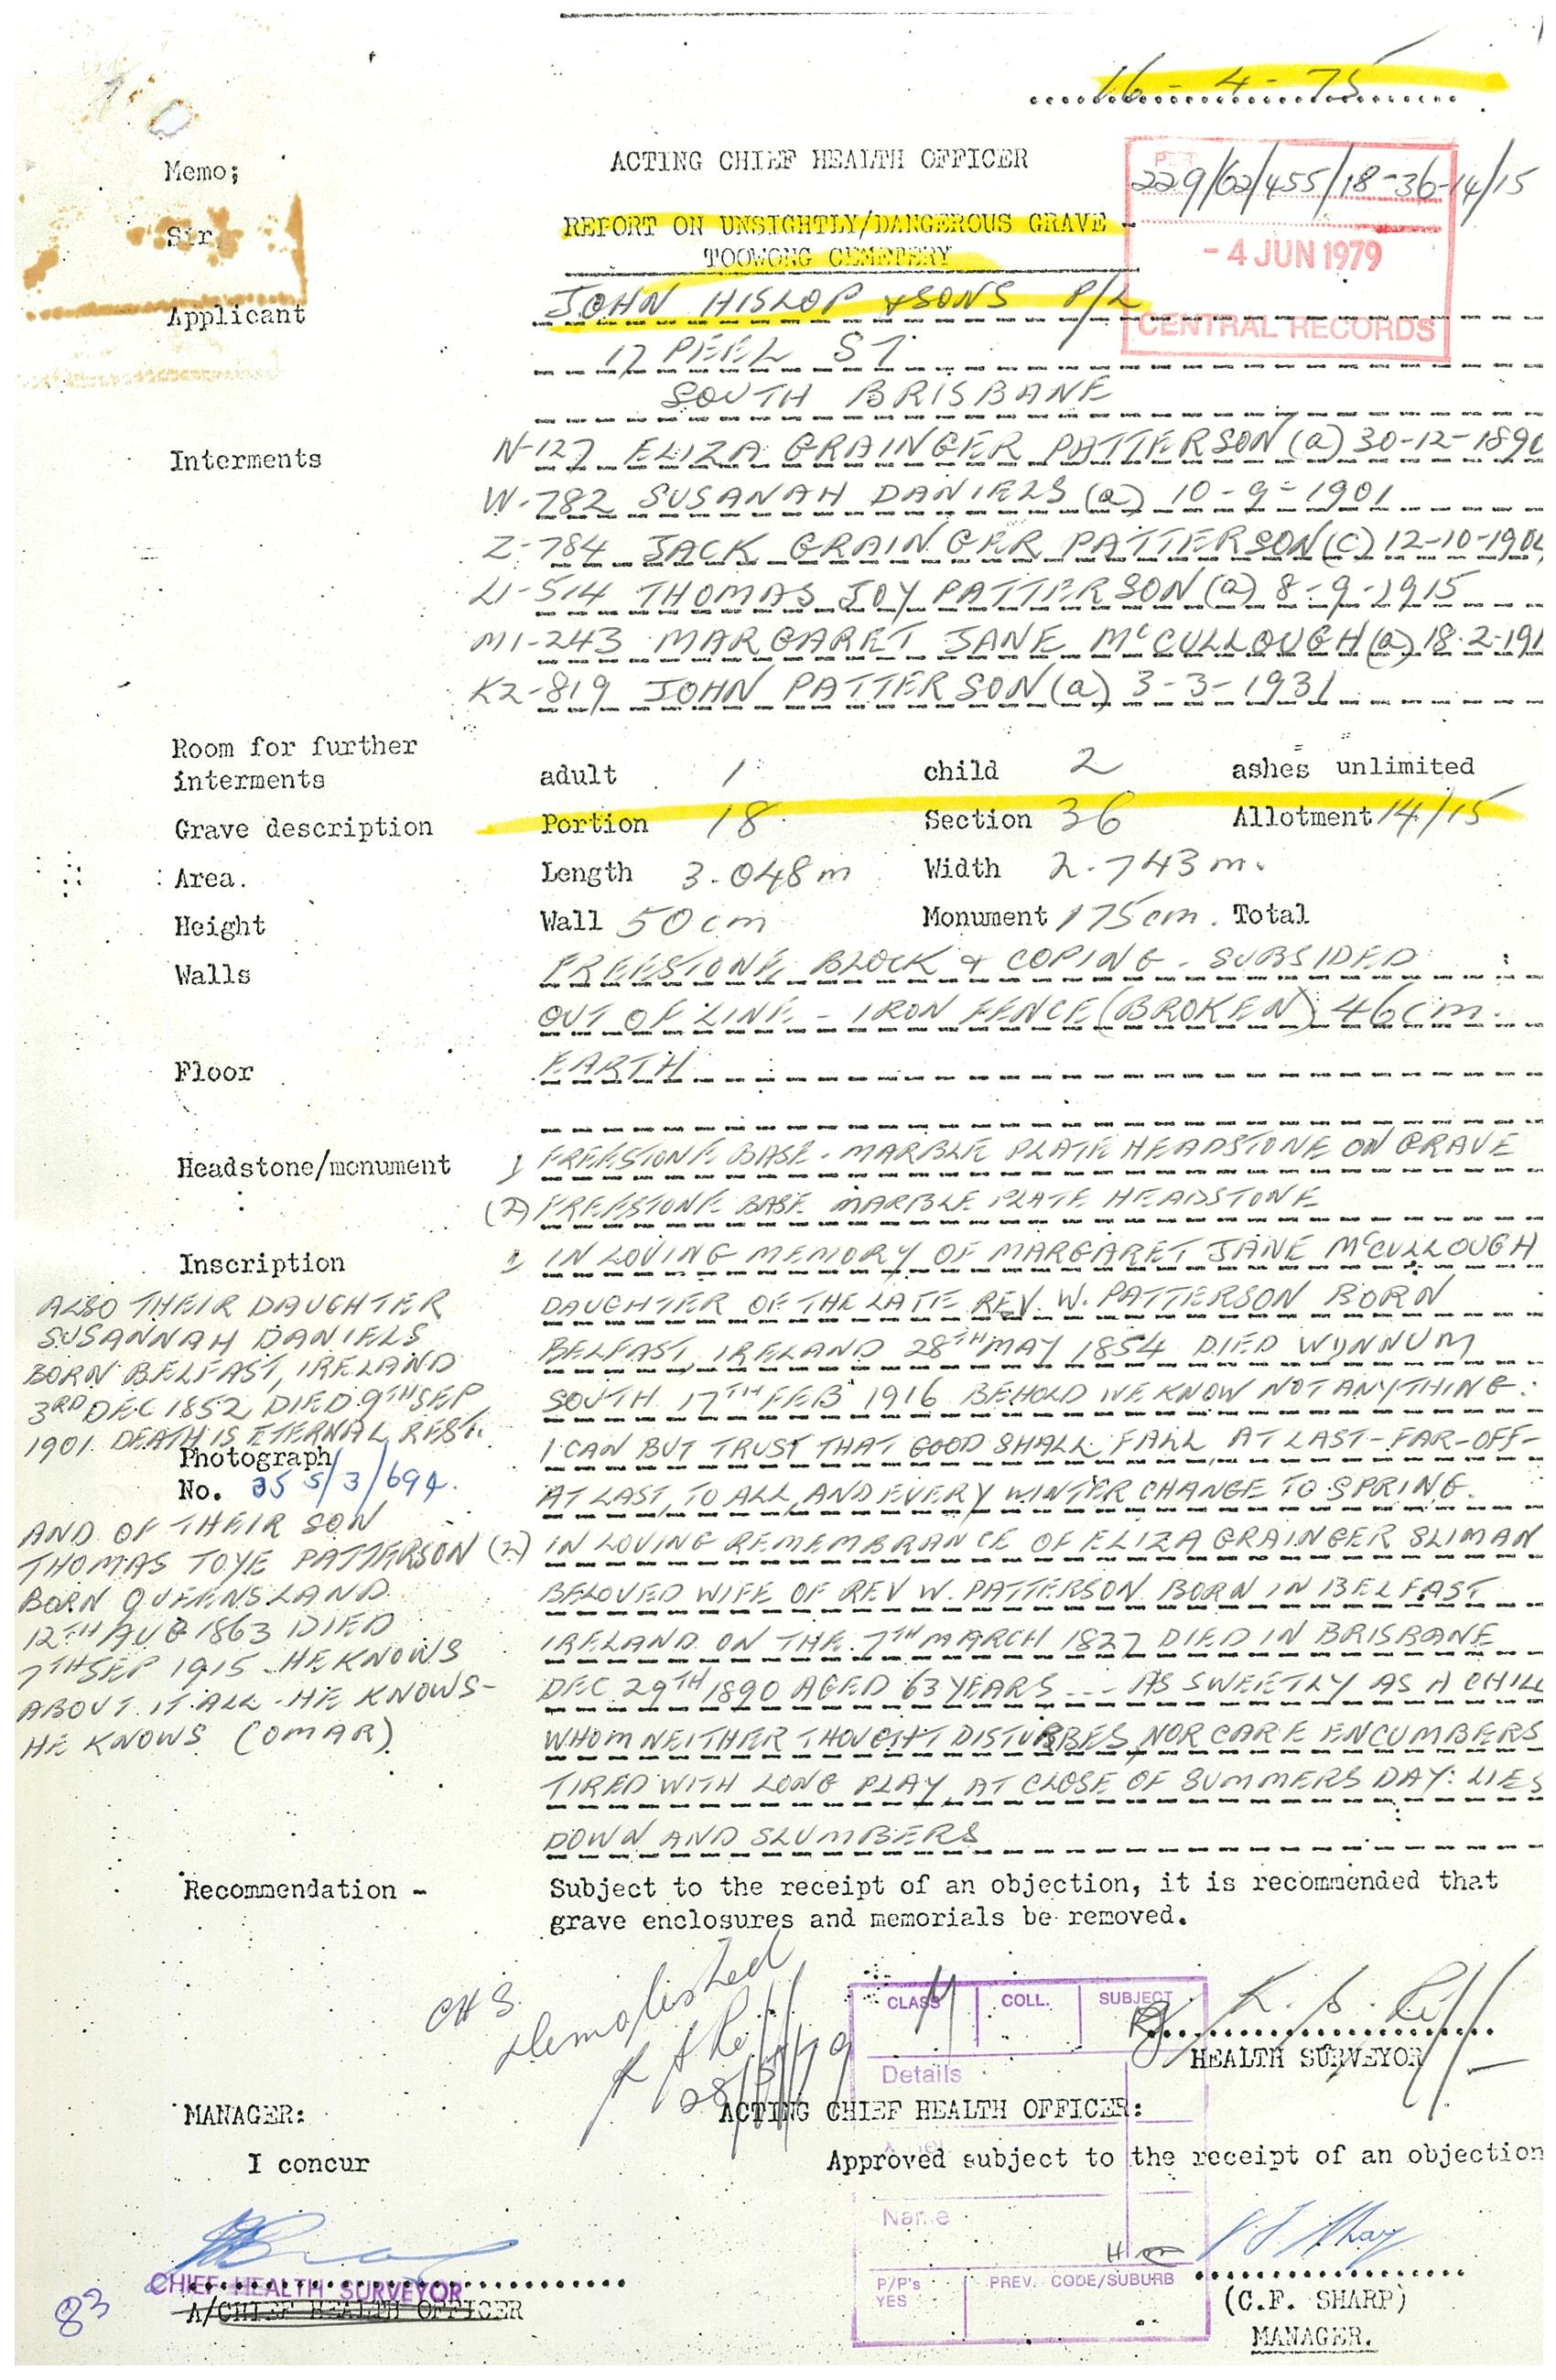 16-4-75
ACTING CHIEF HEALTH OFFICER
229/62/455/18-36-14/15
Memo;
Sir,
REPORT ON UNSIGHTLY/DANGEROUS GRAVE -
TOOWONG CEMETERY
- 4 JUN 1979
CENTRAL RECORDS
Applicant JOHN HISLOP & SONS P/L
17 PEEL ST
SOUTH BRISBANE
Interments N-127 ELIZA GRAINGER PATTERSON (a) 30-12-1890
W-782 SUSANAH DANIELS (a) 10-9-1901
Z-784 JACK GRAINGER PATTERSON (c) 12-10-190
L1-514 THOMAS JOY PATTERSON (a) 8-9-1915
M1-243 MARGARET JANE McCULLOUGH (a) 18.2-191
K2-819 JOHN PATTERSON (a) 3-3-1931
Room for further
interments adult 1 child 2 ashes unlimited
Grave description Portion 18 Section 36 Allotment 14/15
Area. Length 3.048m Width 2.743m.
Height Wall 50cm Monument 175cm. Total
Walls FREESTONE BLOCK & COPING - SUBSIDED
OUT OF LINE - IRON FENCE (BROKEN) 46cm.
Floor EARTH
Headstone/monument 1) FREESTONE BASE - MARBLE PLATE HEADSTONE ON GRAVE
(2) FREESTONE BASE MARBLE PLATE HEADSTONE
Inscription 1) IN LOVING MEMORY OF MARGARET JANE McCULLOUGH
DAUGHTER OF THE LATE REV. W. PATTERSON BORN
BELFAST, IRELAND 28TH MAY 1854 DIED WYNNUM
SOUTH 17TH FEB 1916 BEHOLD WE KNOW NOT ANYTHING:
I CAN BUT TRUST THAT GOOD SHALL FALL AT LAST-FAR-OFF-
AT LAST, TO ALL, AND EVERY WINTER CHANGE TO SPRING.
(2) IN LOVING REMEMBRANCE OF ELIZA GRAINGER SLIMAN
BELOVED WIFE OF REV W. PATTERSON BORN IN BELFAST
IRELAND ON THE 7TH MARCH 1827 DIED IN BRISBANE
DEC 29TH 1890 AGED 63 YEARS --- AS SWEETLY AS A CHILD
WHOM NEITHER THOUGHT DISTURBES, NOR CARE ENCUMBERS
TIRED WITH LONG PLAY, AT CLOSE OF SUMMERS DAY: LIES
DOWN AND SLUMBERS
ALSO THEIR DAUGHTER
SUSANNAH DANIELS
BORN BELFAST, IRELAND
3RD DEC 1852 DIED 9TH SEP
1901. DEATH IS ETERNAL REST.
Photograph
No. 35 5/3/694.
AND OF THEIR SON
THOMAS TOYE PATTERSON
BORN QUEENSLAND
12TH AUG 1863 DIED
7TH SEP 1915 - HE KNOWS
ABOUT IT ALL - HE KNOWS-
HE KNOWS (OMAR)
Recommendation - Subject to the receipt of an objection, it is recommended that
grave enclosures and memorials be removed.
CHS
demolished
CLASS COLL. SUBJECT
Details
Name
P/P's
YES
PREV. CODE/SUBURB
HEALTH SURVEYOR
MANAGER: ACTING CHIEF HEALTH OFFICER:
I concur Approved subject to the receipt of an objection
CHIEF HEALTH SURVEYOR
A/CHIEF HEALTH OFFICER
(C.F. SHARP)
MANAGER.
83